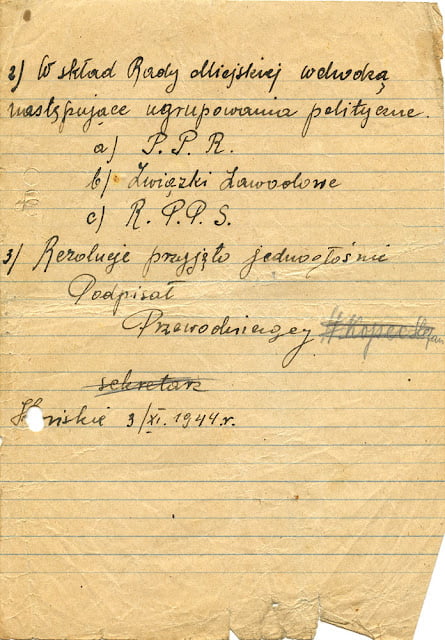 2) W skład Rady Miejskiej wchodzą
następujące ugrupowania polityczne.
a) P. P. R.
b) Związki Zawodowe
c) R. P. P. S.
3) Rezolucje przyjęto jednogłośnie
Podpisał
Przewodniczący
sekretarz
3/XI. 1944 r.